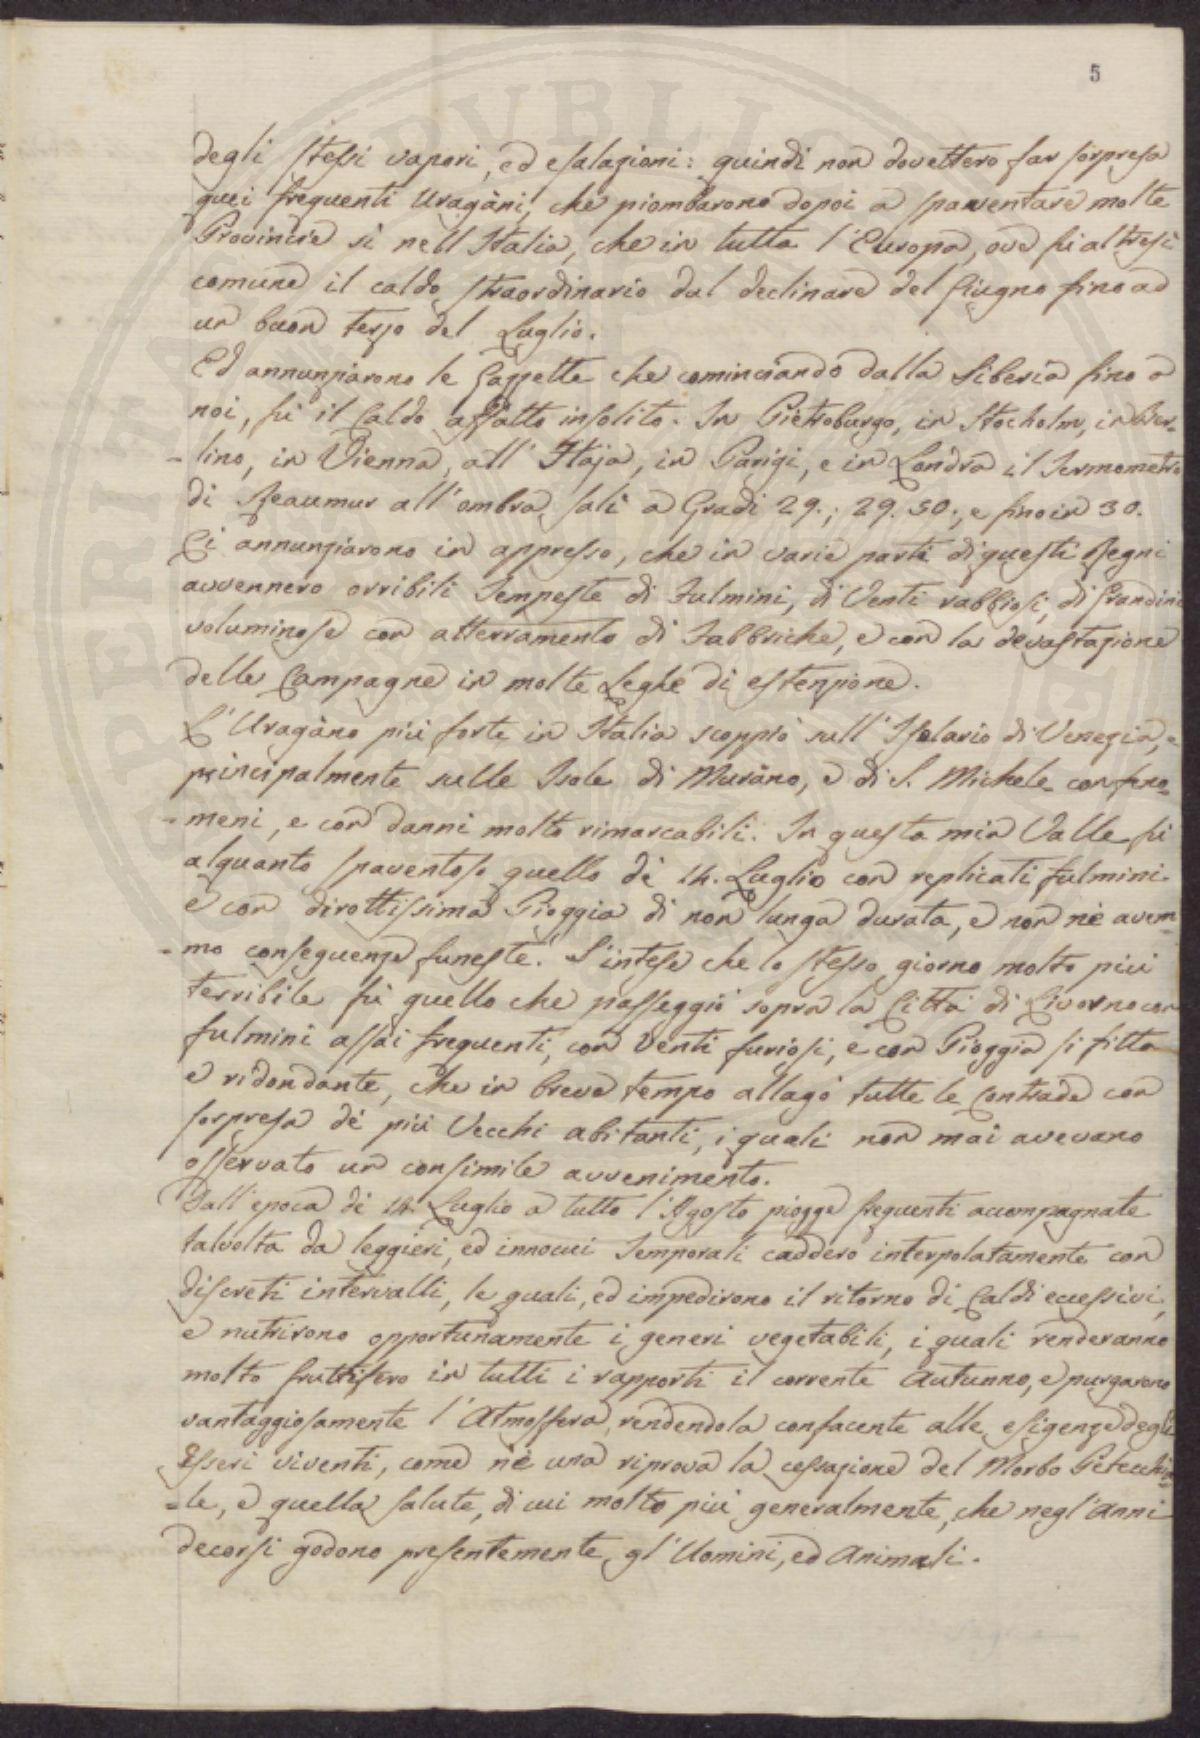 5
degli stessi vapori, ed esalazioni: quindi non dovettero far sorpresa
quei frequenti Uragàni, che piombarono dopoi a spaventare molte
Provincie sì nell'Italia, che in tutta l'Europa, ove fù altresì
comune il caldo straordinario dal declinare del Giugno fino ad
un buon terzo del Luglio.
Ed annunziarono le Gazzette che cominciando dalla Siberia fino a
noi, fù il Caldo affatto insolito. In Pietroburgo, in Stocholm, in Ber-
-lino, in Vienna, all'Haja, in Parigi, e in Londra il Termometro
di Reaumur all'ombra salì a Gradi 29.; 29. 50.; e fino in 30.
Ci annunziarono in appresso, che in varie parti di questi Regni
avvennero orribili Tempeste di Fulmini, di Venti rabbiosi, di Grandini
voluminose con atterramento di Fabbriche, e con la devastazione
delle Campagne in molte Leghe di estenzione.
L'Uragàno più forte in Italia scoppiò sull'Isolario di Venezia, e
principalmente sulle Isole di Muràno, e di S. Michele con feno-
-meni, e con danni molto rimarcabili. In questa mia Valle fù
alquanto spaventoso quello dè 14. Luglio con replicati fulmini
e con dirottissima Pioggia di non lunga durata, e non nè avem-
-mo conseguenze funeste. S'intese che lo stesso giorno molto più
terribile fù quello che passeggiò sopra la Città di Livorno con
fulmini assai frequenti, con Venti furiosi, e con Pioggia sì fitta
e ridondante, che in breve tempo allagò tutte le Contrade con
sorpresa dè più Vecchi abitanti, i quali non mai avevano
osservato un consimile avvenimento.
Dall'epoca dè 14. Luglio a tutto l'Agosto piogge frequenti accompagnate
talvolta da leggieri, ed innocui Temporali caddero interpolatamente con
discreti intervalli, le quali, ed impedirono il ritorno di Caldi eccessivi,
e nutrirono opportunamente i generi vegetabili, i quali renderanno
molto fruttifero in tutti i rapporti il corrente Autunno, e purgarono
vantaggiosamente l'Atmosfera, rendendola confacente alle esigenze degli
Esseri viventi, come nè una riprova la cessazione del Morbo Petecchia-
-le, e quella salute, di cui molto più generalmente, che negl'Anni
decorsi godono presentemente gl'Uomini, ed Animali.